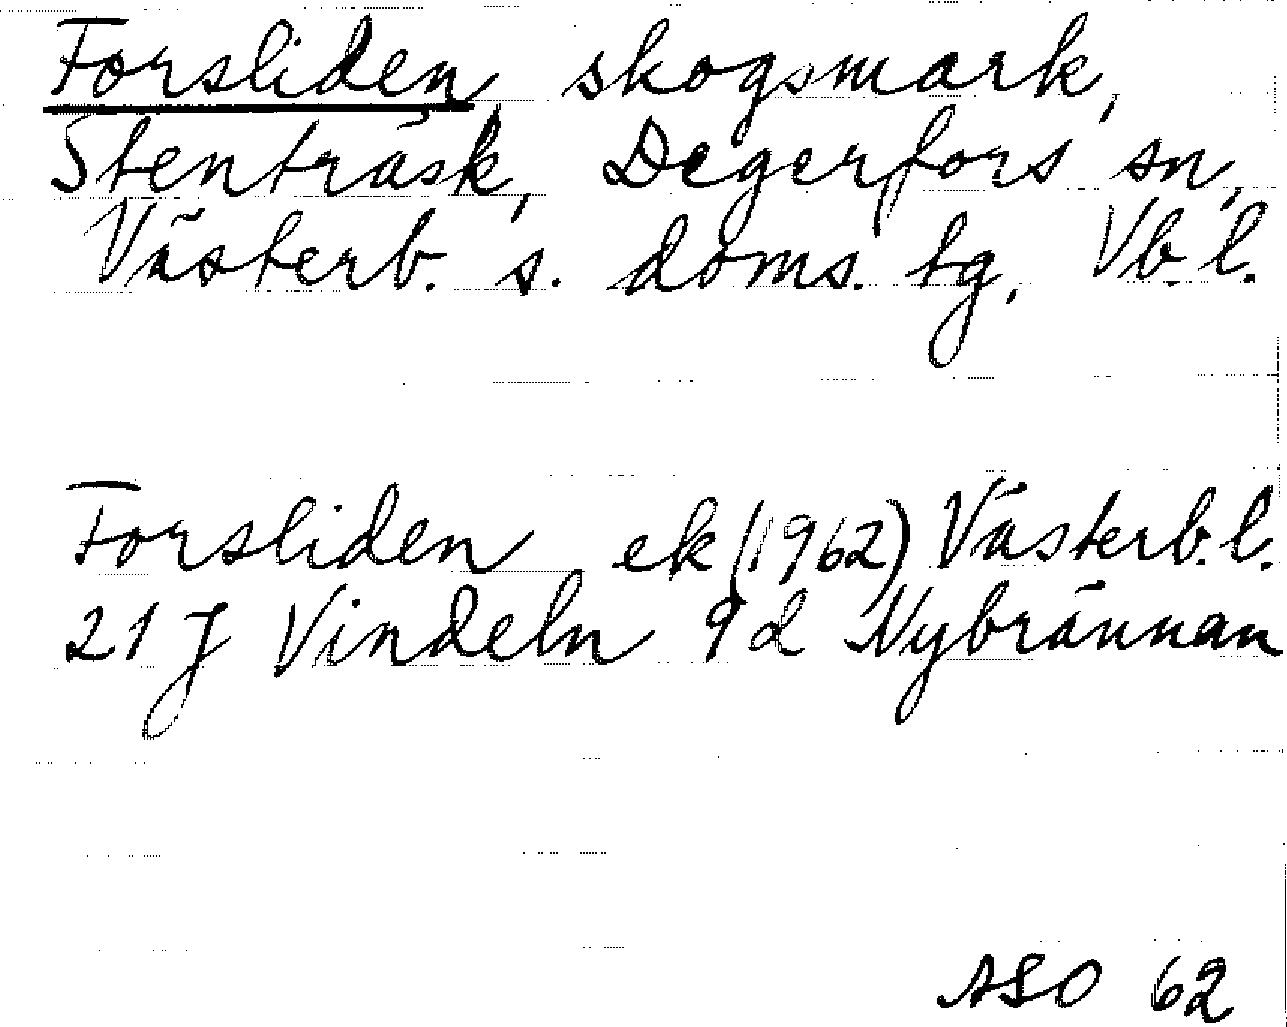 Forsliden skogsmark,
Stenträsk, Degerfors sn,
Västerb. s. doms. tg, Vb. l.
Forsliden ek (1962) Västerb. l.
21 J Vindeln 9d Nybrännan
ASO 62